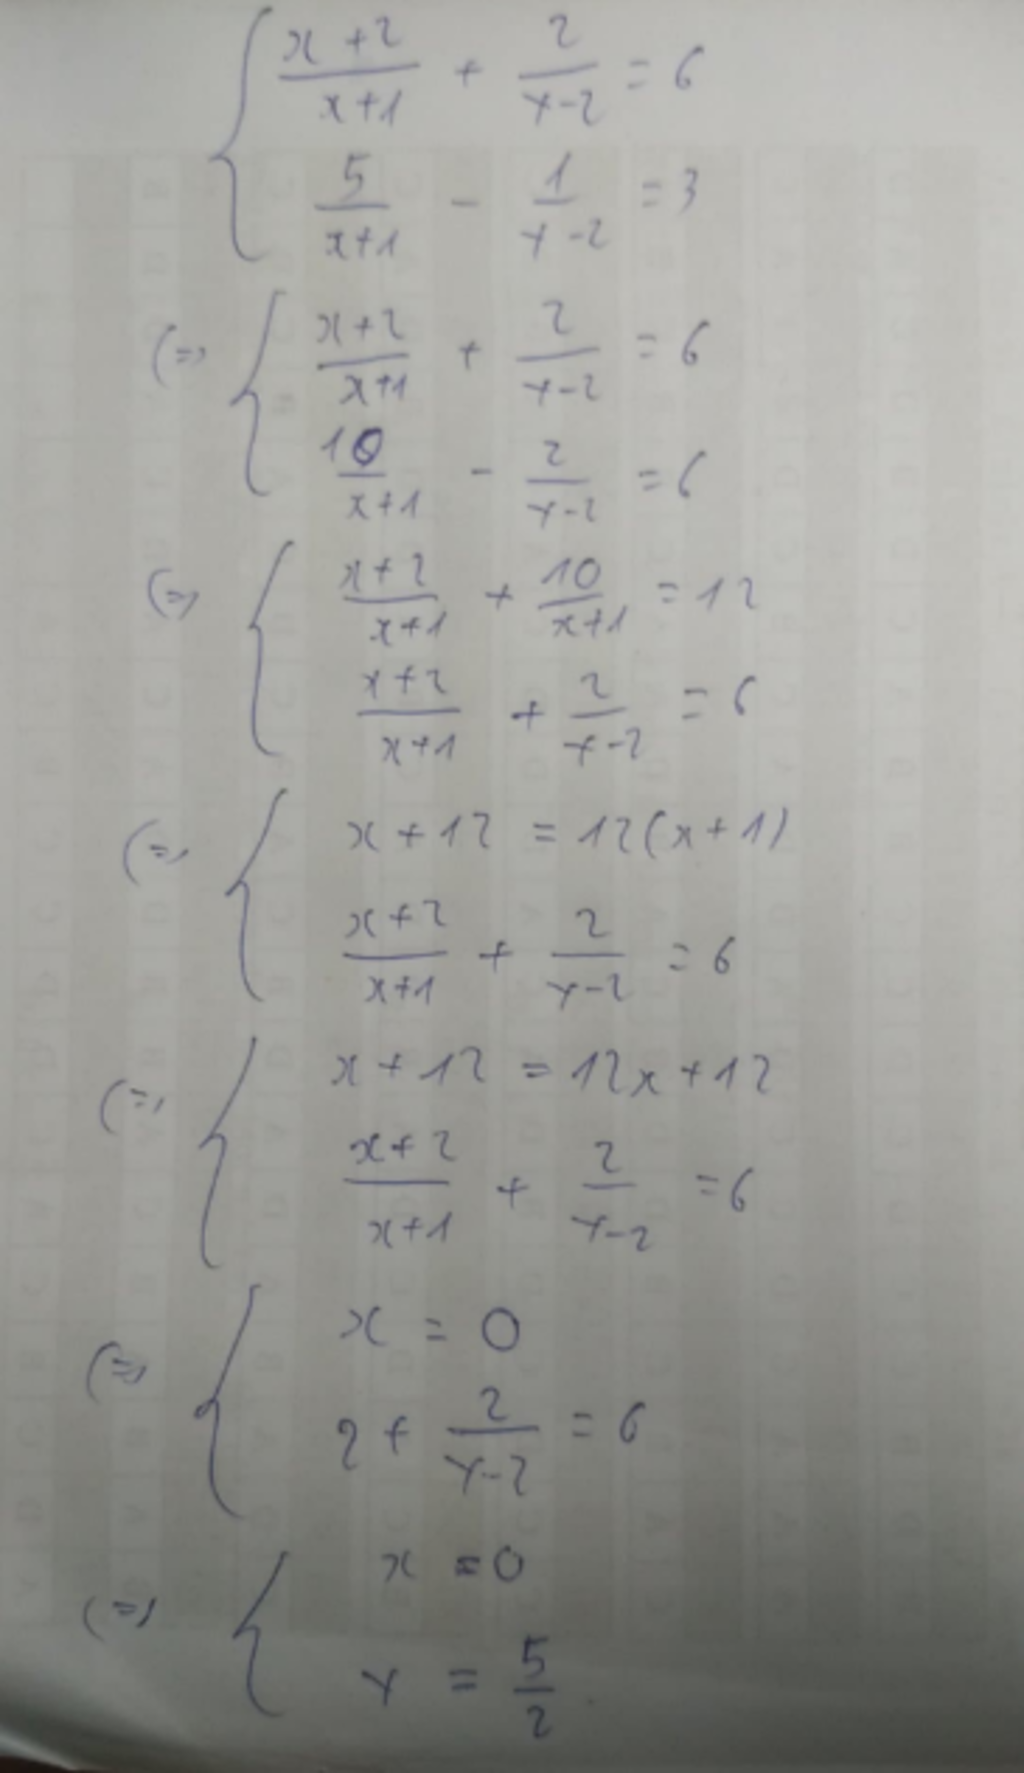 { (x+2)/(x+1) + 2/(y-2) = 6
5/(x+1) - 1/(y-2) = 3
(=) { (x+2)/(x+1) + 2/(y-2) = 6
10/(x+1) - 2/(y-2) = 6
(=) { (x+2)/(x+1) + 10/(x+1) = 12
(x+2)/(x+1) + 2/(y-2) = 6
(=) { x+12 = 12(x+1)
(x+2)/(x+1) + 2/(y-2) = 6
(=) { x+12 = 12x+12
(x+2)/(x+1) + 2/(y-2) = 6
(=) { x = 0
2 + 2/(y-2) = 6
(=) { x = 0
y = 5/2.